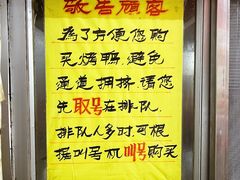 敬告顾客
为了方便您购
买烤鸭,避免
通道拥挤,请您
先取号在排队.
排队人多时,可根
据叫号机叫号购买